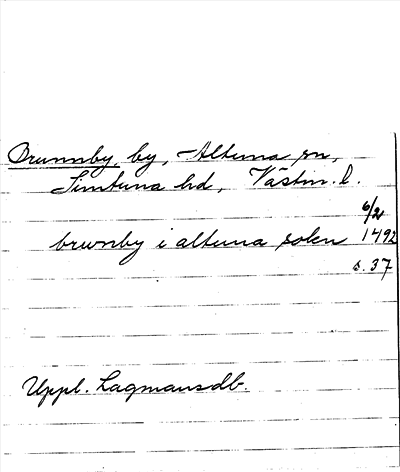 Brunnby, by, Altuna sn,
Simtuna hd, Västm. l.
6/2
brwnby i altuna sokn 1492
s. 37
Uppl. Lagmansdb.